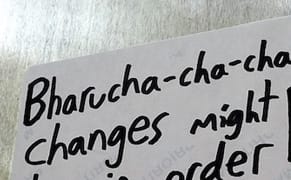 Bharucha-cha-cha
changes might
order